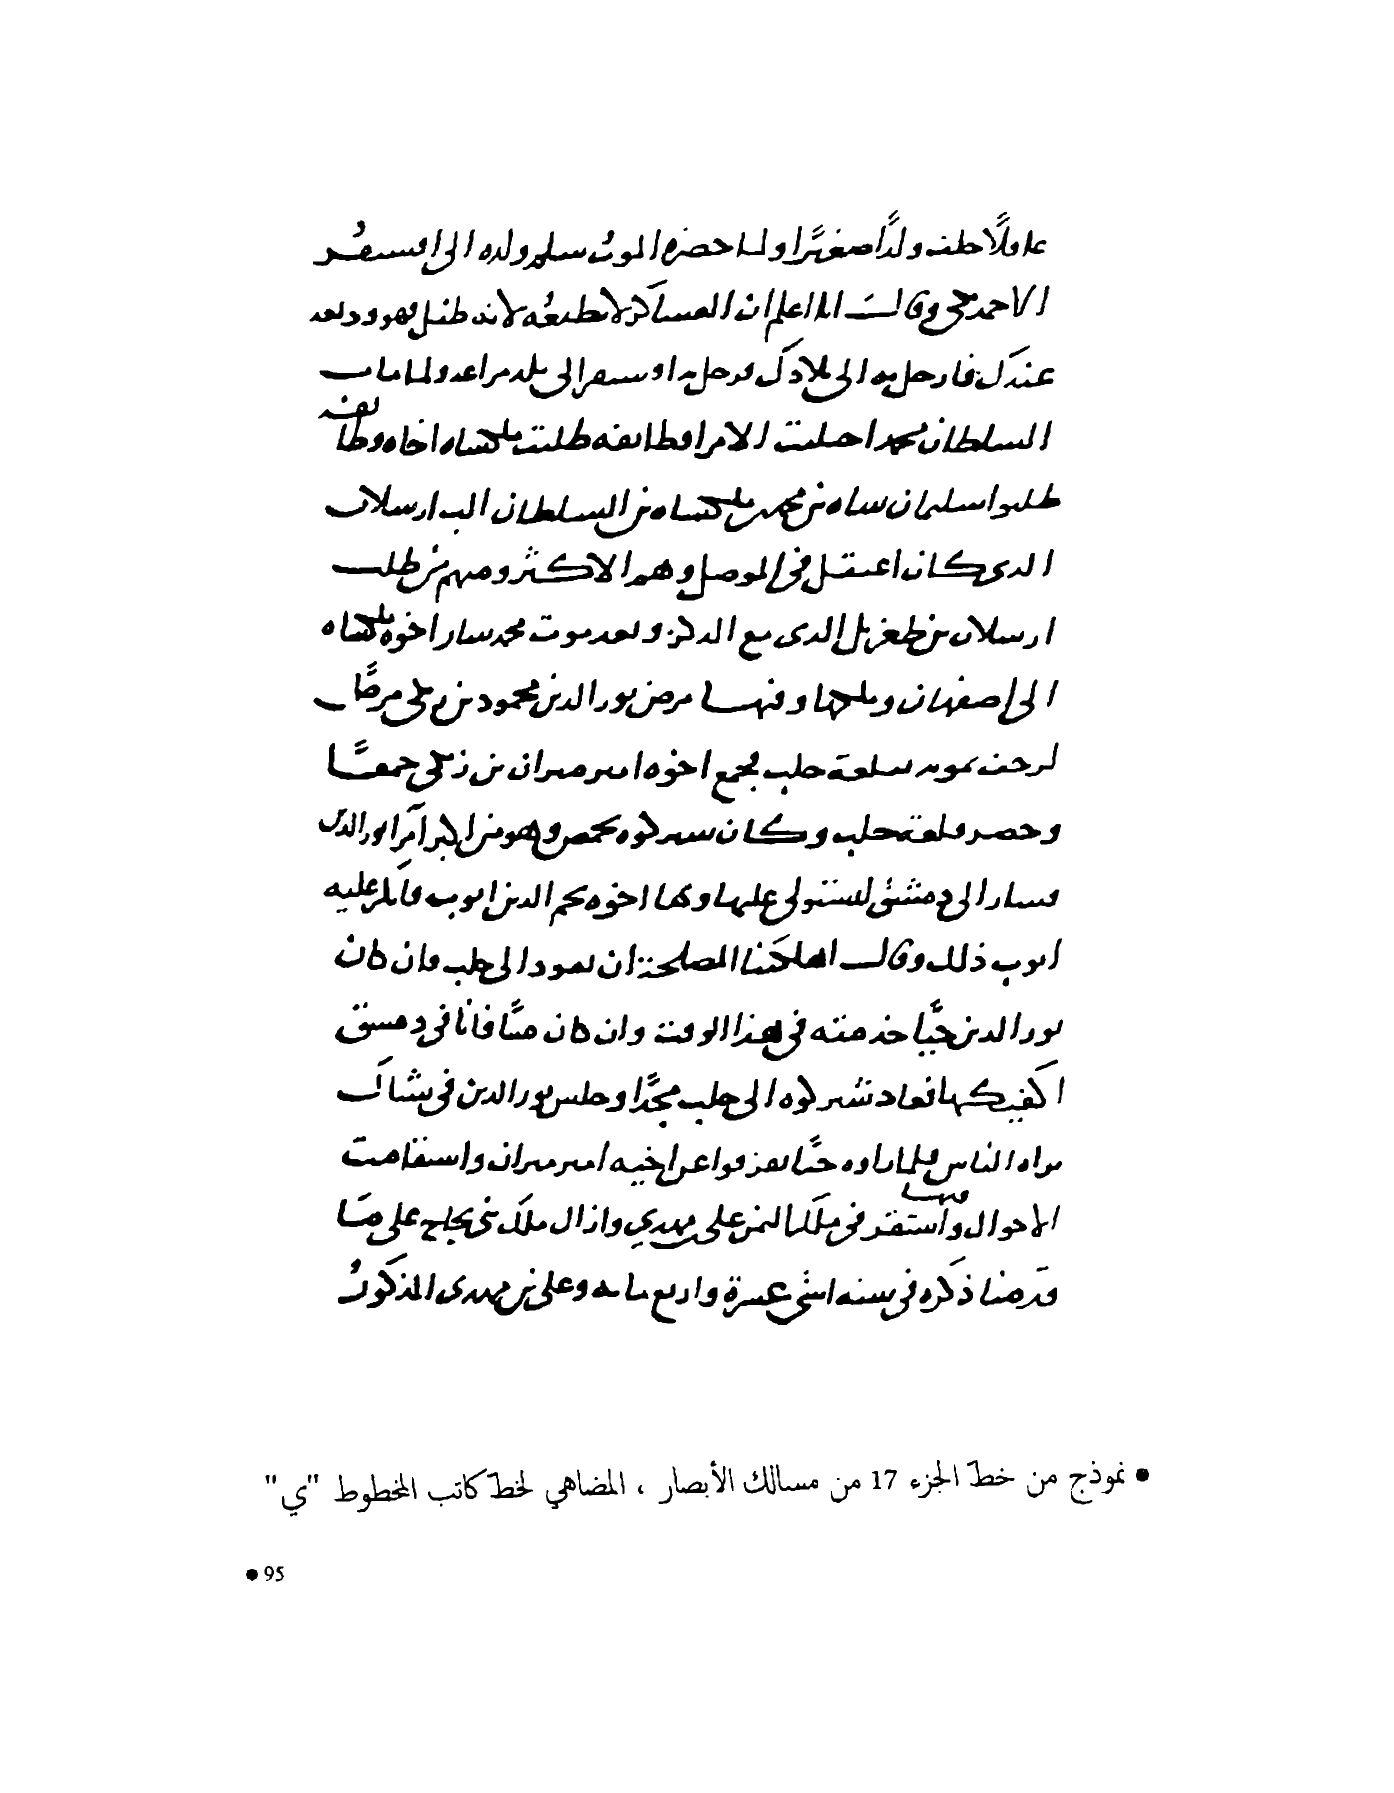 عاقلًا خلف ولدًا صغيرًا ولما حضره الموت سلم ولده الى اقسنقر
الاحمديلي وقال انا اعلم ان العساكر لا تطيعه لانه طفل وهو وديعة
عندك فارحل به الى بلادك فرحل به اقسنقر الى بلد مراغه ولما مات
السلطان محمد اختلفت الامرا فطايفه طلبت ملكشاه اخاه وطايفه
طلبوا سليمان شاه بن محمد بن ملكشاه بن السلطان الب ارسلان
الذي كان اعتقل في الموصل وهم الاكثر ومنهم من طلب
ارسلان بن طغريل الذي مع الدكز وبعد موت محمد سار اخوه ملكشاه
الى اصفهان وملكها وفيها مرض نور الدين محمود بن زنكي مرضًا
ارجف بموته بقلعة حلب فجمع اخوه امير ميران بن زنكي جمعًا
وحصر قلعة حلب وكان شيركوه بحمص وهو من اكبر امرا نور الدين
فسار الى دمشق ليستولي عليها وبها اخوه نجم الدين ايوب فانكر عليه
ايوب ذلك وقال اهلكتنا المصلحة ان تعود الى حلب فان كان
نور الدين حيًّا خدمته في هذا الوقت وان كان ميتًا فانا في دمشق
اكفيكها فعاد شيركوه الى حلب مجدًّا وجلس نور الدين في شباك
يراه الناس فلما راوه حيًّا تفرقوا عن اخيه امير ميران واستقامت
الاحوال وفيها استقر في ملك اليمن علي بن مهدي وازال ملك بني نجاح على ما
قدمنا ذكره في سنه اثنتي عشرة واربع مايه وعلي بن مهدي المذكور
• نموذج من خطّ الجزء 17 من مسالك الأبصار ، المضاهي لخطّ كاتب المخطوط "ي"
95 •